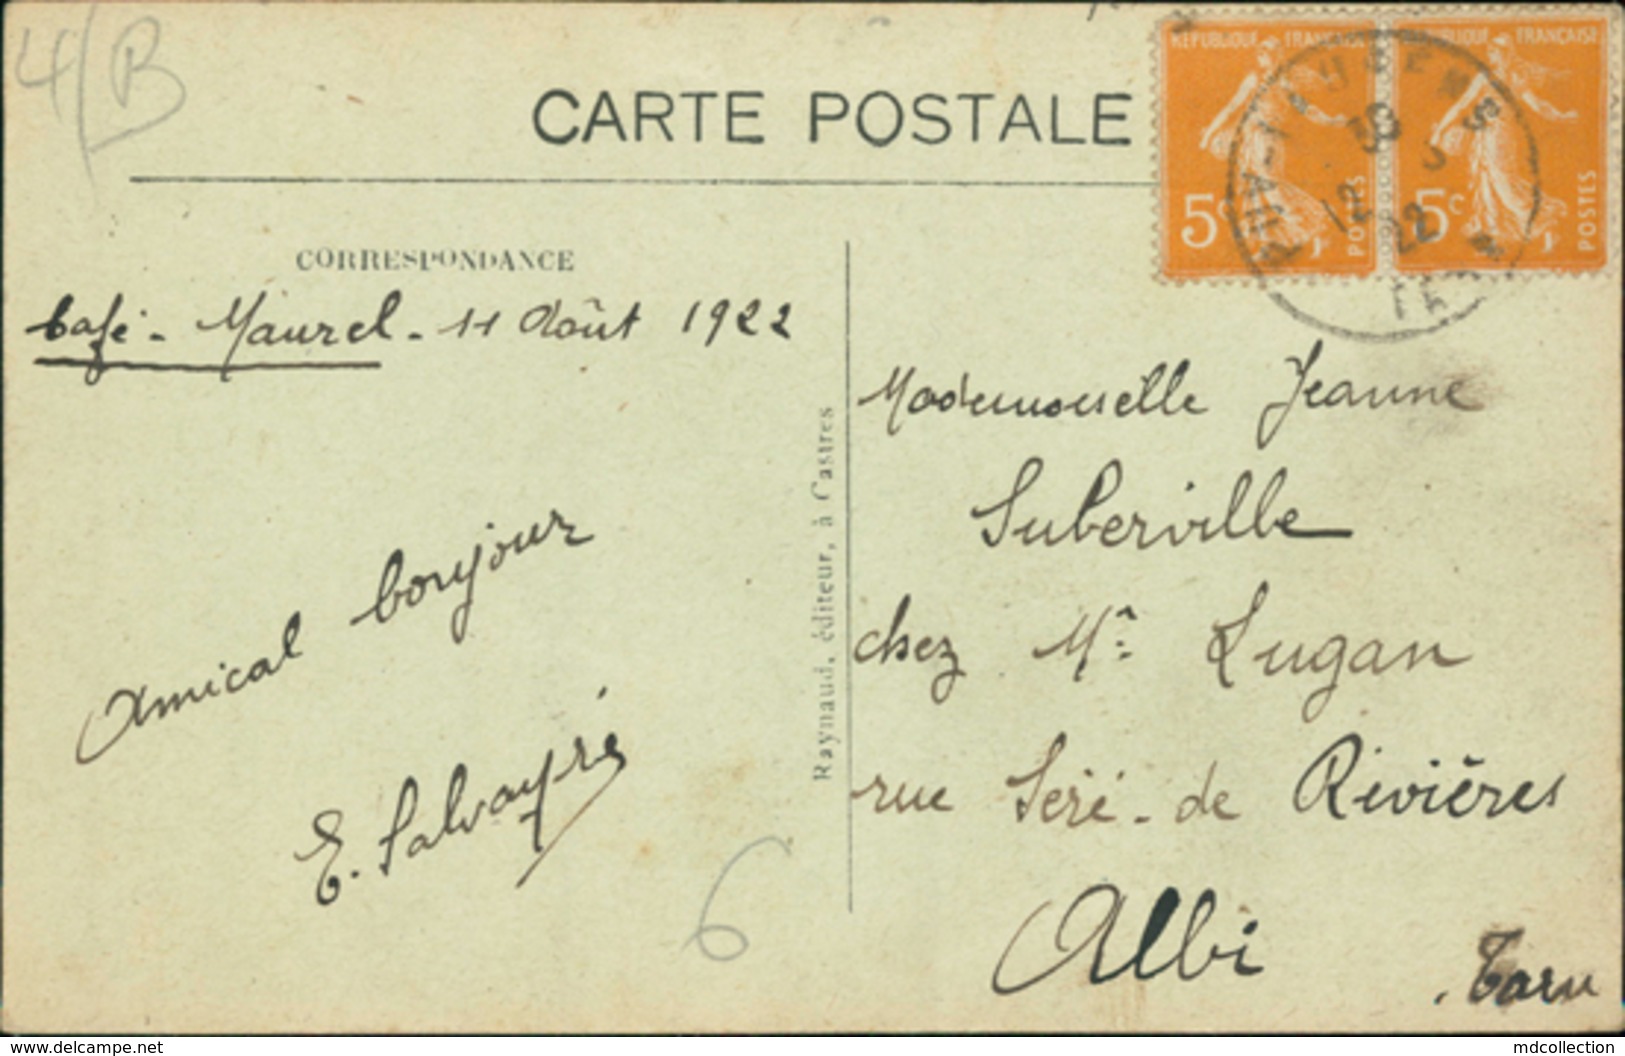 4/B
CARTE POSTALE
REPUBLIQUE FRANÇAISE
5c POSTES
REPUBLIQUE FRANÇAISE
5c POSTES
12 22
CORRESPONDANCE
Café - Maurel - 11 Août 1922
Amical bonjour
E. Salvayré
6
Raynaud, éditeur, à Castres
Mademoiselle Jeanne
Suberville
chez Mr Lugan
rue Séré-de Rivières
Albi
Tarn
www.delcampe.net
mdcollection